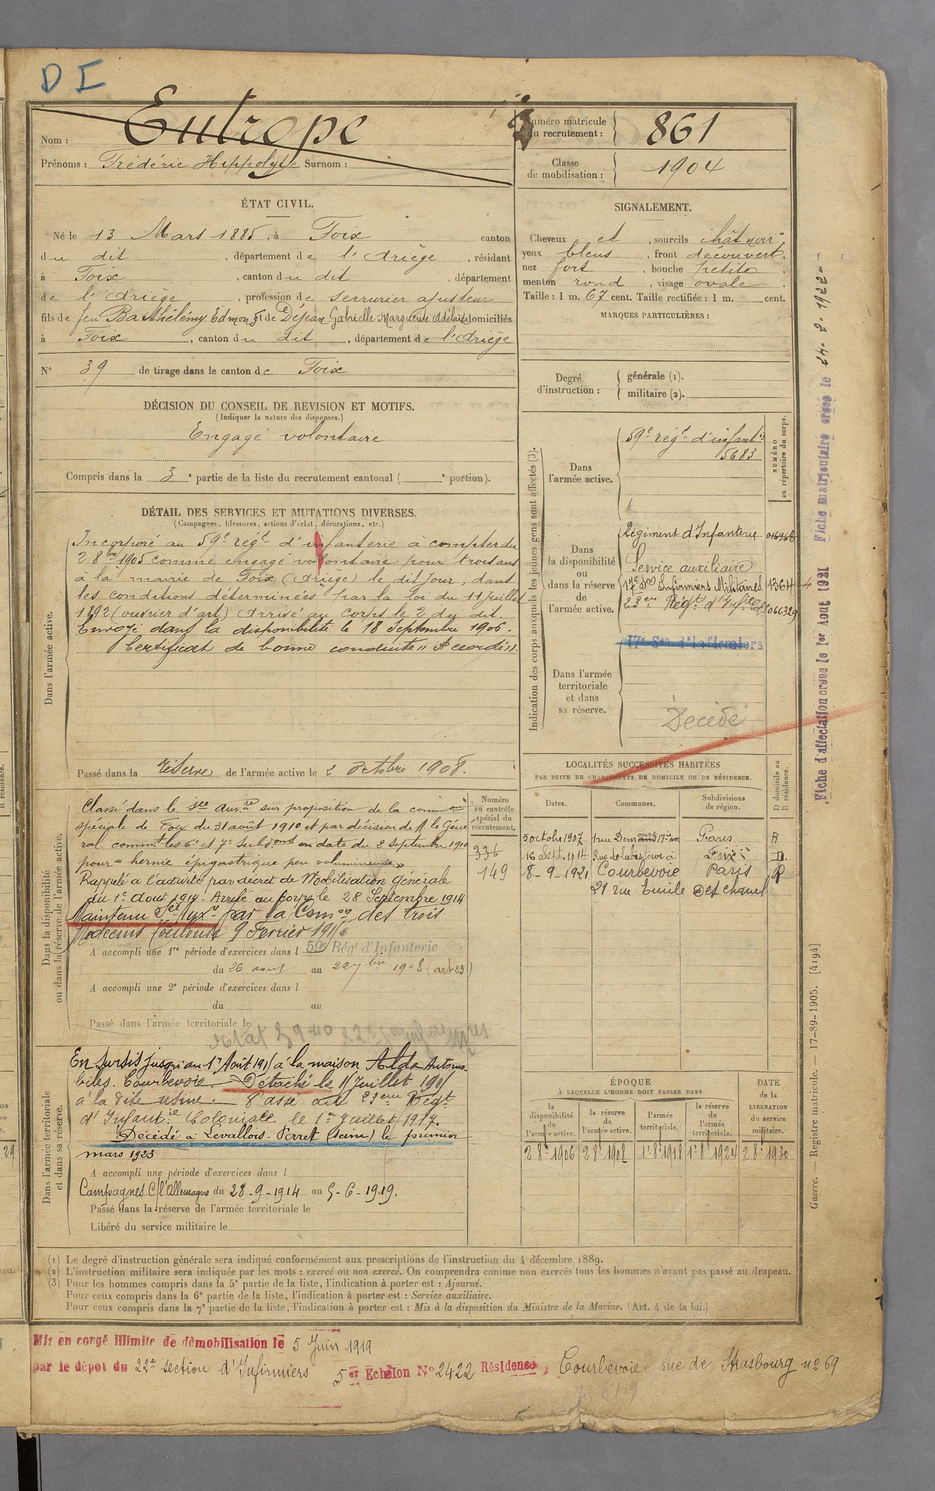 D I
Nom : Eutrope
Prénoms : Frédéric Hippolyte Surnom :
Numéro matricule du recrutement : 861
Classe de mobilisation : 1904
ÉTAT CIVIL.
Né le 13 Mars 1885, à Foix canton
du dit, département de l'Ariège, résidant
à Foix, canton du dit, département
de l'Ariège, profession de serrurier ajusteur
fils de feu Barthélémy Edmond et de Dejean Gabrielle Marguerite Adélaïde domiciliés
à Foix, canton du dit, département de l'Ariège
N° 39 de tirage dans le canton de Foix
DÉCISION DU CONSEIL DE REVISION ET MOTIFS.
(Indiquer la nature des dispenses.)
Engagé volontaire
Compris dans la 3e partie de la liste du recrutement cantonal ( e portion).
SIGNALEMENT.
Cheveux et sourcils chât noir
yeux bleus, front découvert
nez fort, bouche petite
menton rond, visage ovale
Taille : 1 m. 67 cent. Taille rectifiée : 1 m. cent.
MARQUES PARTICULIÈRES :
Degré d'instruction : générale (1).
militaire (2).
DÉTAIL DES SERVICES ET MUTATIONS DIVERSES.
(Campagnes, blessures, actions d'éclat, décorations, etc.)
Dans l'armée active.
Incorporé au 59e régt d'infanterie à compter du
2 8bre 1905 comme engagé volontaire pour trois ans
à la mairie de Foix (Ariège) le dit jour, dans
les conditions déterminées par la loi du 11 juillet
1892 (ouvrier d'art) Arrivé au corps le 2 du dit.
Envoyé dans la disponibilité le 18 Septembre 1906.
Certificat de bonne conduite "Accordé".
Passé dans la réserve de l'armée active le 2 octobre 1908.
Indication des corps auxquels les jeunes gens sont affectés (3).
NUMÉRO au répertoire du corps.
Dans l'armée active.
59e régt d'infantie
5683
Dans la disponibilité ou dans la réserve de l'armée active.
Régiment d'Infanterie
Service auxiliaire
17e Son Infirmiers Militaires 13614
23eme Régt d'Infie Cle 066329
17e Son d'Infirmiers
Dans l'armée territoriale et dans sa réserve.
Décédé
LOCALITÉS SUCCESSIVES HABITÉES
PAR SUITE DE CHANGEMENTS DE DOMICILE OU DE RÉSIDENCE.
Dates. Communes. Subdivisions de région. D domicile ou R résidence.
5 octobre 1907 Paris R
16 Sept. 1914 Foix D
8-9-1921 Courbevoie Paris R
21 rue Emile Deschanel
Dans la disponibilité ou dans la réserve de l'armée active.
Numéro au contrôle spécial du recrutement.
336
149
Classé dans le Sce Auxre sur proposition de la comon
spéciale de Foix du 31 août 1910 et par décision de M. le Géné
ral commt les 6e et 7e Subdons en date du 2 Septembre 1910
pour "hernie épigastrique peu volumineuse"
Rappelé à l'activité par décret de Mobilisation Générale
du 1er Août 1914. Arrivé au corps le 28 Septembre 1914
Maintenu Sce Auxre par la Comon des trois
Médecins Toulouse 9 Février 191
A accompli une 1re période d'exercices dans l 59 Régt d'Infanterie
du 26 août au 22 7bre 1908
A accompli une 2e période d'exercices dans l
du au
Passé dans l'armée territoriale le
Dans l'armée territoriale et dans sa réserve.
En sursis jusqu'au 1er Août 191 à la maison Alda Automo
biles. Courbevoie. Détaché le 1 Juillet 191
à la dite usine. Passé au 23eme Régt
d'Infantie Coloniale le 1er Juillet 1917.
Décédé à Levallois-Perret (Seine) le premier
mars 1923
A accompli une période d'exercices dans l
Campagnes c/l'Allemagne du 28-9-1914 au 5-6-1919.
Passé dans la réserve de l'armée territoriale le
Libéré du service militaire le
ÉPOQUE
À LAQUELLE L'HOMME DOIT PASSER DANS
la disponibilité de l'armée active. la réserve de l'armée active. l'armée territoriale. la réserve de l'armée territoriale.
DATE de la LIBÉRATION du service militaire.
2 8e 1906 2 8e 1908 1er 8e 1918 1er 8e 1924 2 8e 1930
(1) Le degré d'instruction générale sera indiqué conformément aux prescriptions de l'instruction du 4 décembre 1889.
(2) L'instruction militaire sera indiquée par les mots : exercé ou non exercé. On comprendra comme non exercés tous les hommes n'ayant pas passé au drapeau.
(3) Pour les hommes compris dans la 5e partie de la liste, l'indication à porter est : Ajourné.
Pour ceux compris dans la 6e partie de la liste, l'indication à porter est : Service auxiliaire.
Pour ceux compris dans la 7e partie de la liste, l'indication à porter est : Mis à la disposition du Ministre de la Marine. (Art. 4 de la loi.)
Mis en congé illimité de démobilisation le 5 Juin 1919
par le dépot du 22e section d'Infirmiers 5e Echelon N° 2422 Résidence, Courbevoie rue de Strasbourg no 69
Fiche d'affectation créée le 1er Août 1921 Fiche matriculaire créée le
Guerre. — Registre matricule. — 17-89-1905. [4194]